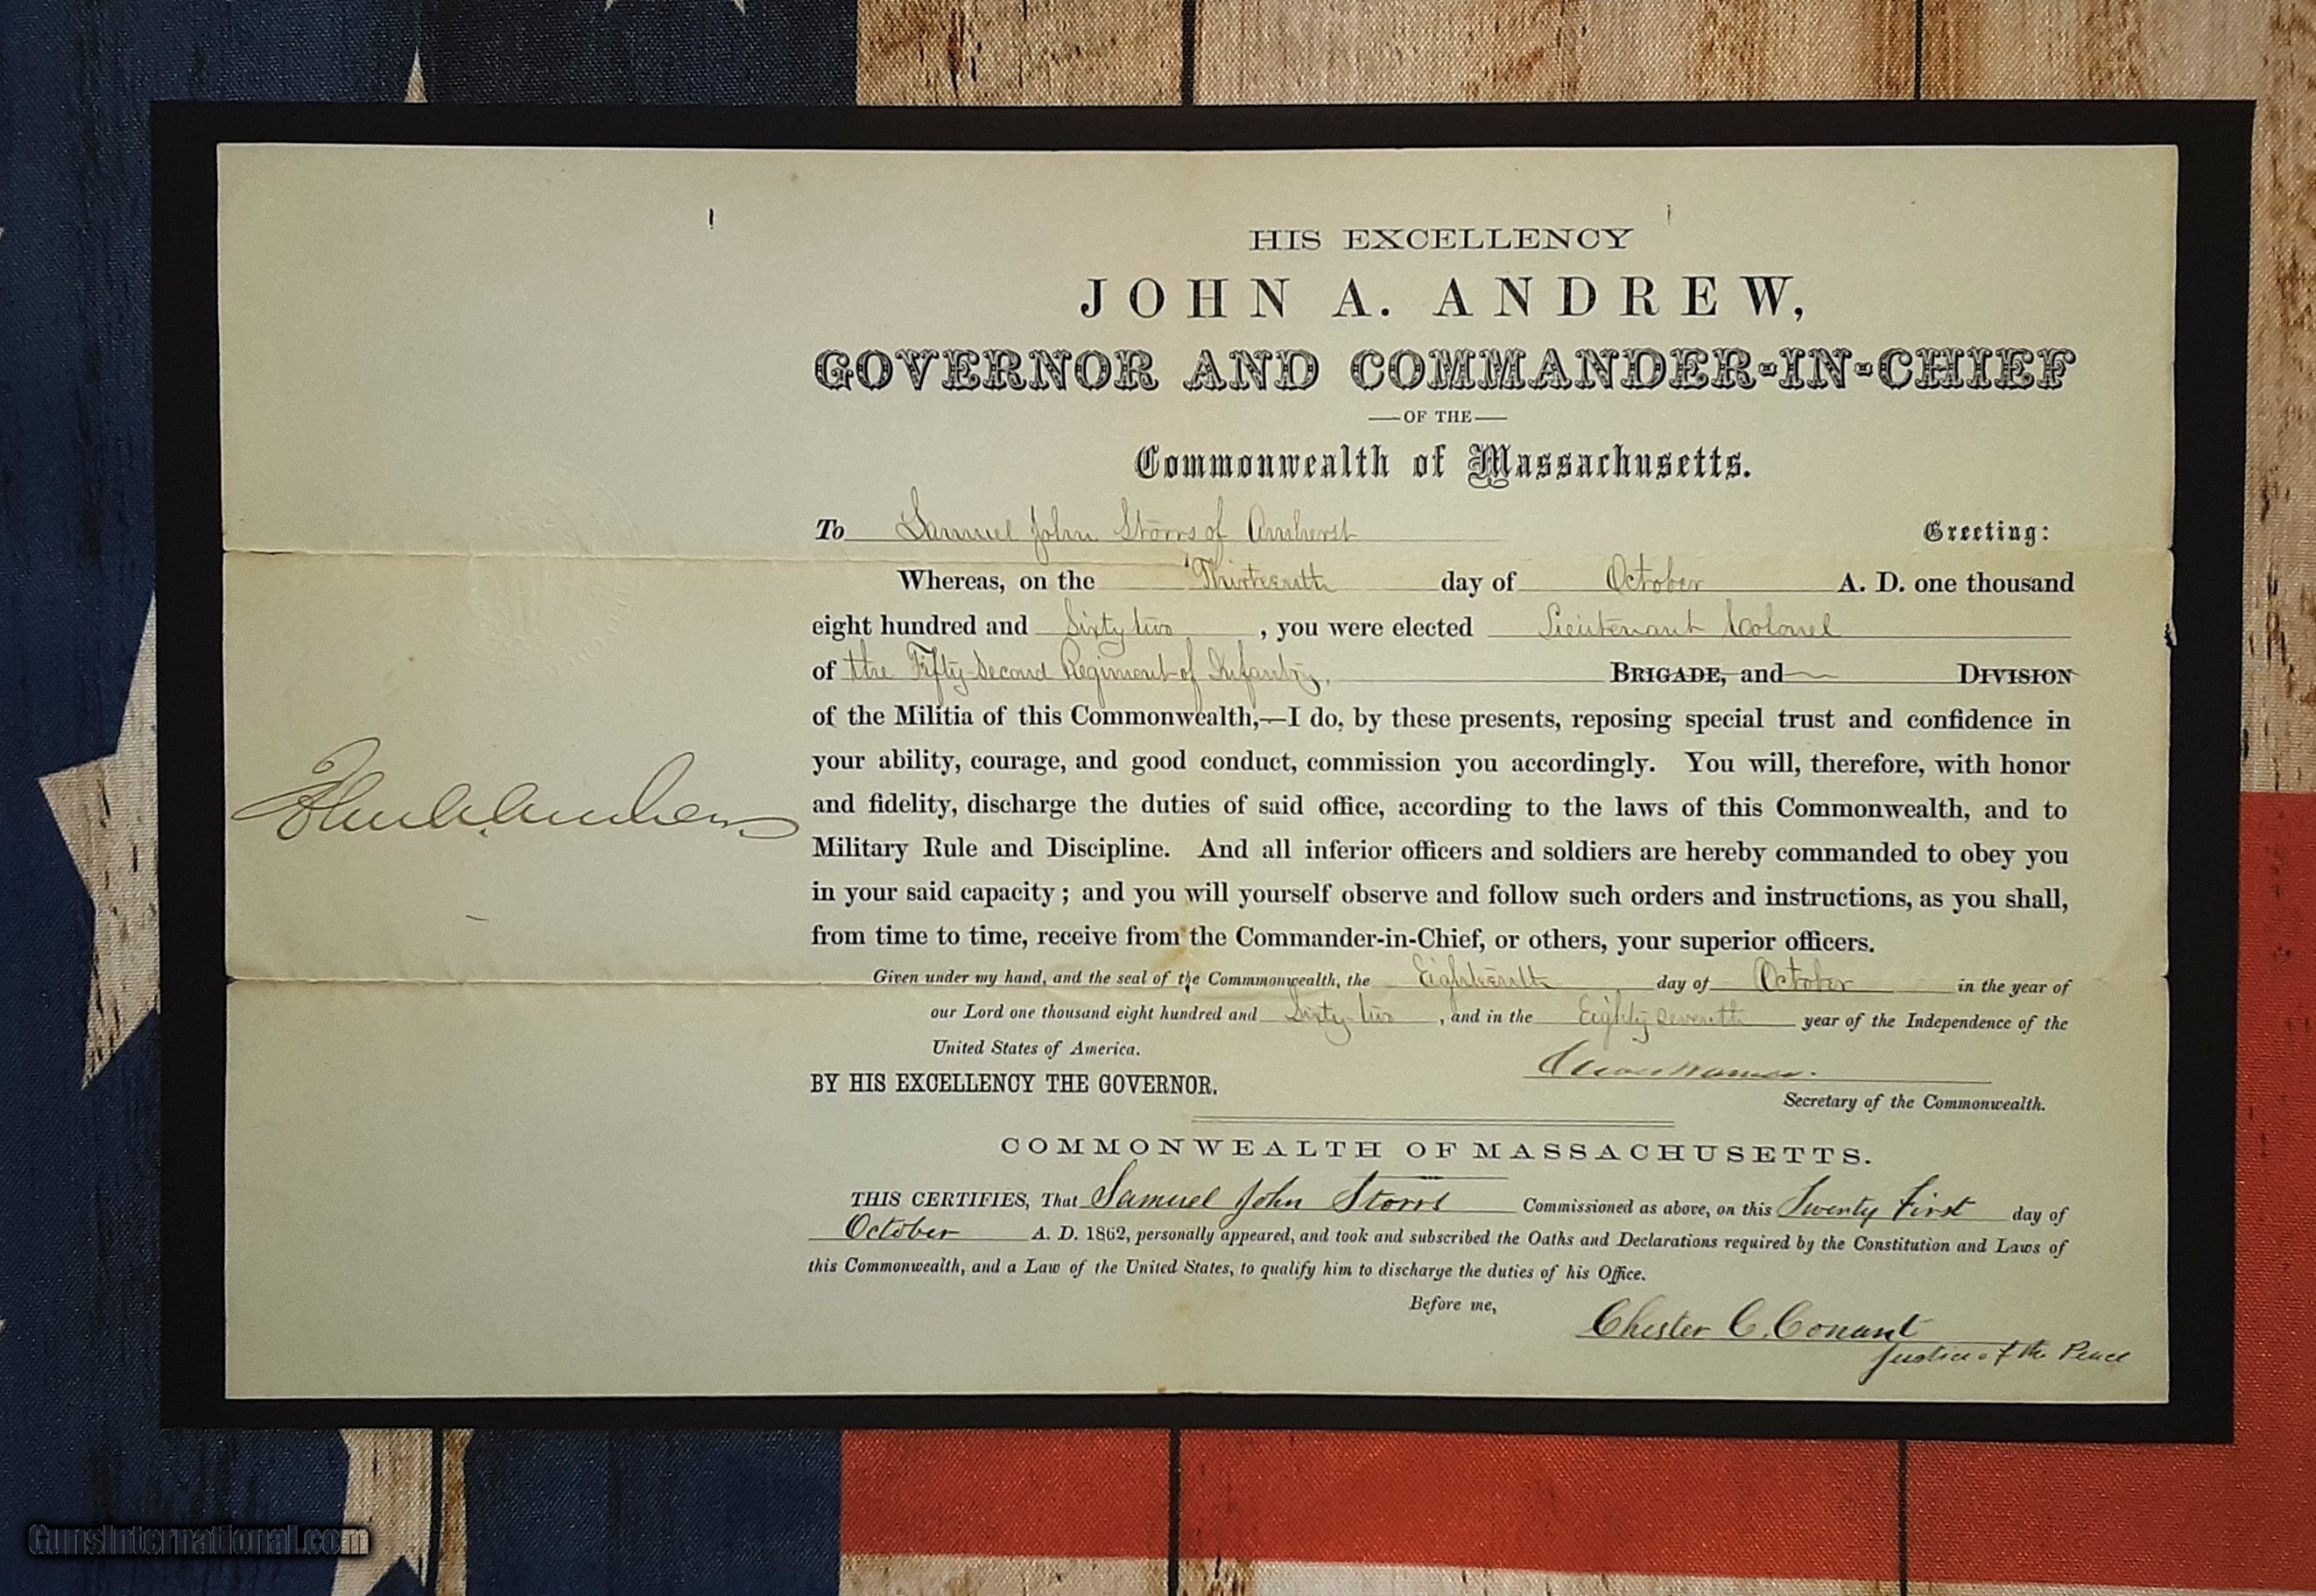 HIS EXCELLENCY
JOHN A. ANDREW,
GOVERNOR AND COMMANDER-IN-CHIEF
—OF THE—
Commonwealth of Massachusetts.
To Samuel John Storrs of Amherst Greeting:
Whereas, on the Thirteenth day of October A. D. one thousand
eight hundred and Sixty two, you were elected Lieutenant Colonel
of the Fifty-Second Regiment of Infantry, BRIGADE, and DIVISION
of the Militia of this Commonwealth,—I do, by these presents, reposing special trust and confidence in
your ability, courage, and good conduct, commission you accordingly. You will, therefore, with honor
John A. Andrew
and fidelity, discharge the duties of said office, according to the laws of this Commonwealth, and to
Military Rule and Discipline. And all inferior officers and soldiers are hereby commanded to obey you
in your said capacity; and you will yourself observe and follow such orders and instructions, as you shall,
from time to time, receive from the Commander-in-Chief, or others, your superior officers.
Given under my hand, and the seal of the Commmonwealth, the Eighteenth day of October in the year of
our Lord one thousand eight hundred and Sixty-two, and in the Eighty seventh year of the Independence of the
United States of America.
BY HIS EXCELLENCY THE GOVERNOR.
Secretary of the Commonwealth.
COMMONWEALTH OF MASSACHUSETTS.
THIS CERTIFIES, That Samuel John Storrs Commissioned as above, on this Twenty First day of
October A. D. 1862, personally appeared, and took and subscribed the Oaths and Declarations required by the Constitution and Laws of
this Commonwealth, and a Law of the United States, to qualify him to discharge the duties of his Office.
Before me,
Chester C. Conant
Justice of the Peace
GunsInternational.com